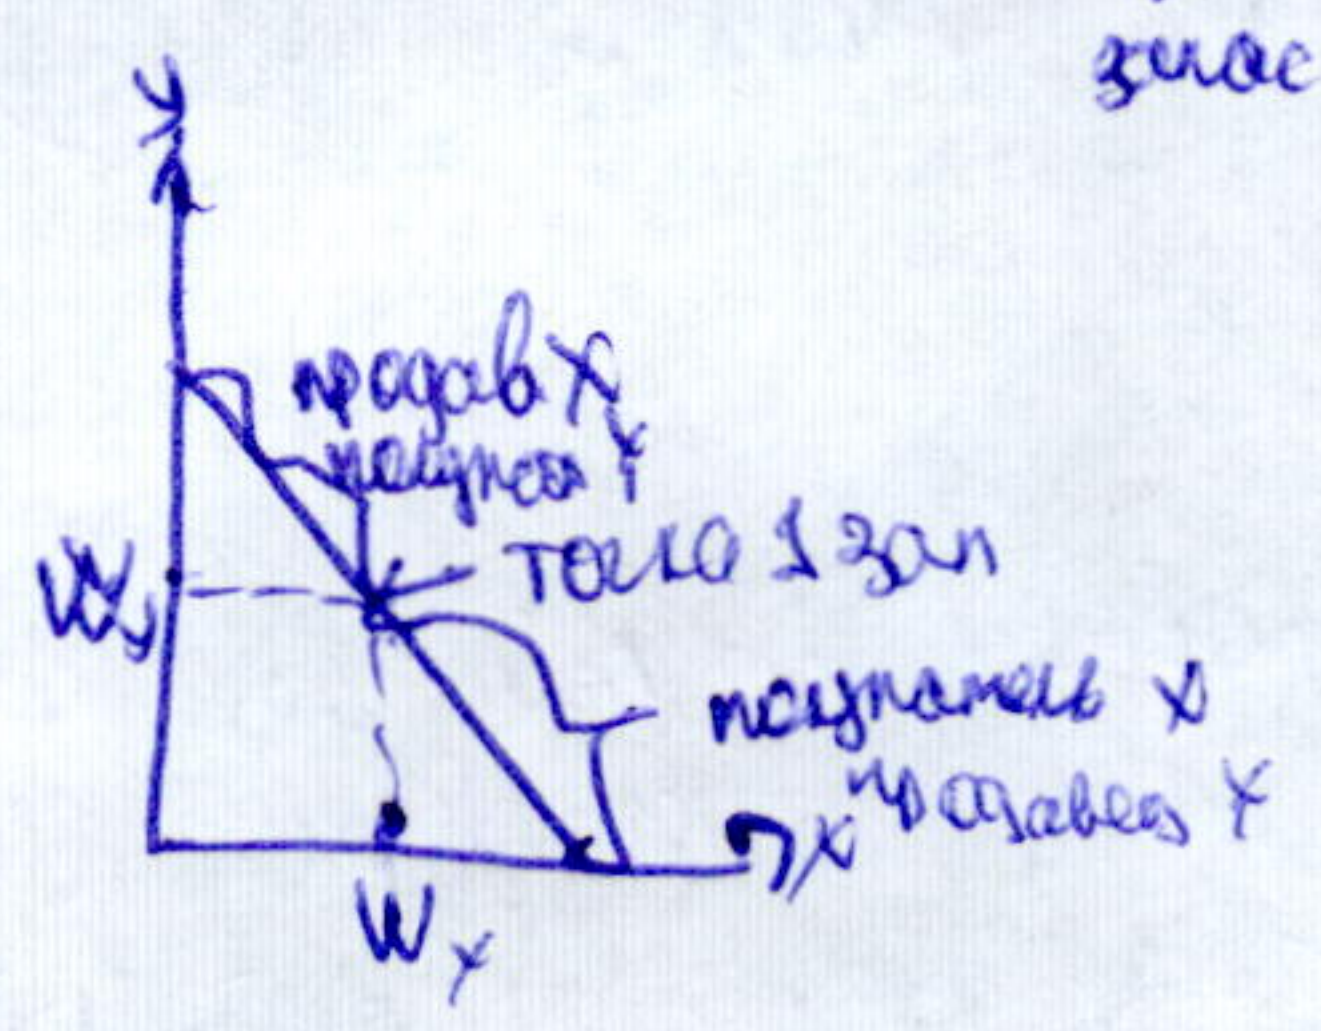 знас
y
продав X
покупат Y
точка I зап
Wy
покупатель X
продавец Y
X
Wx